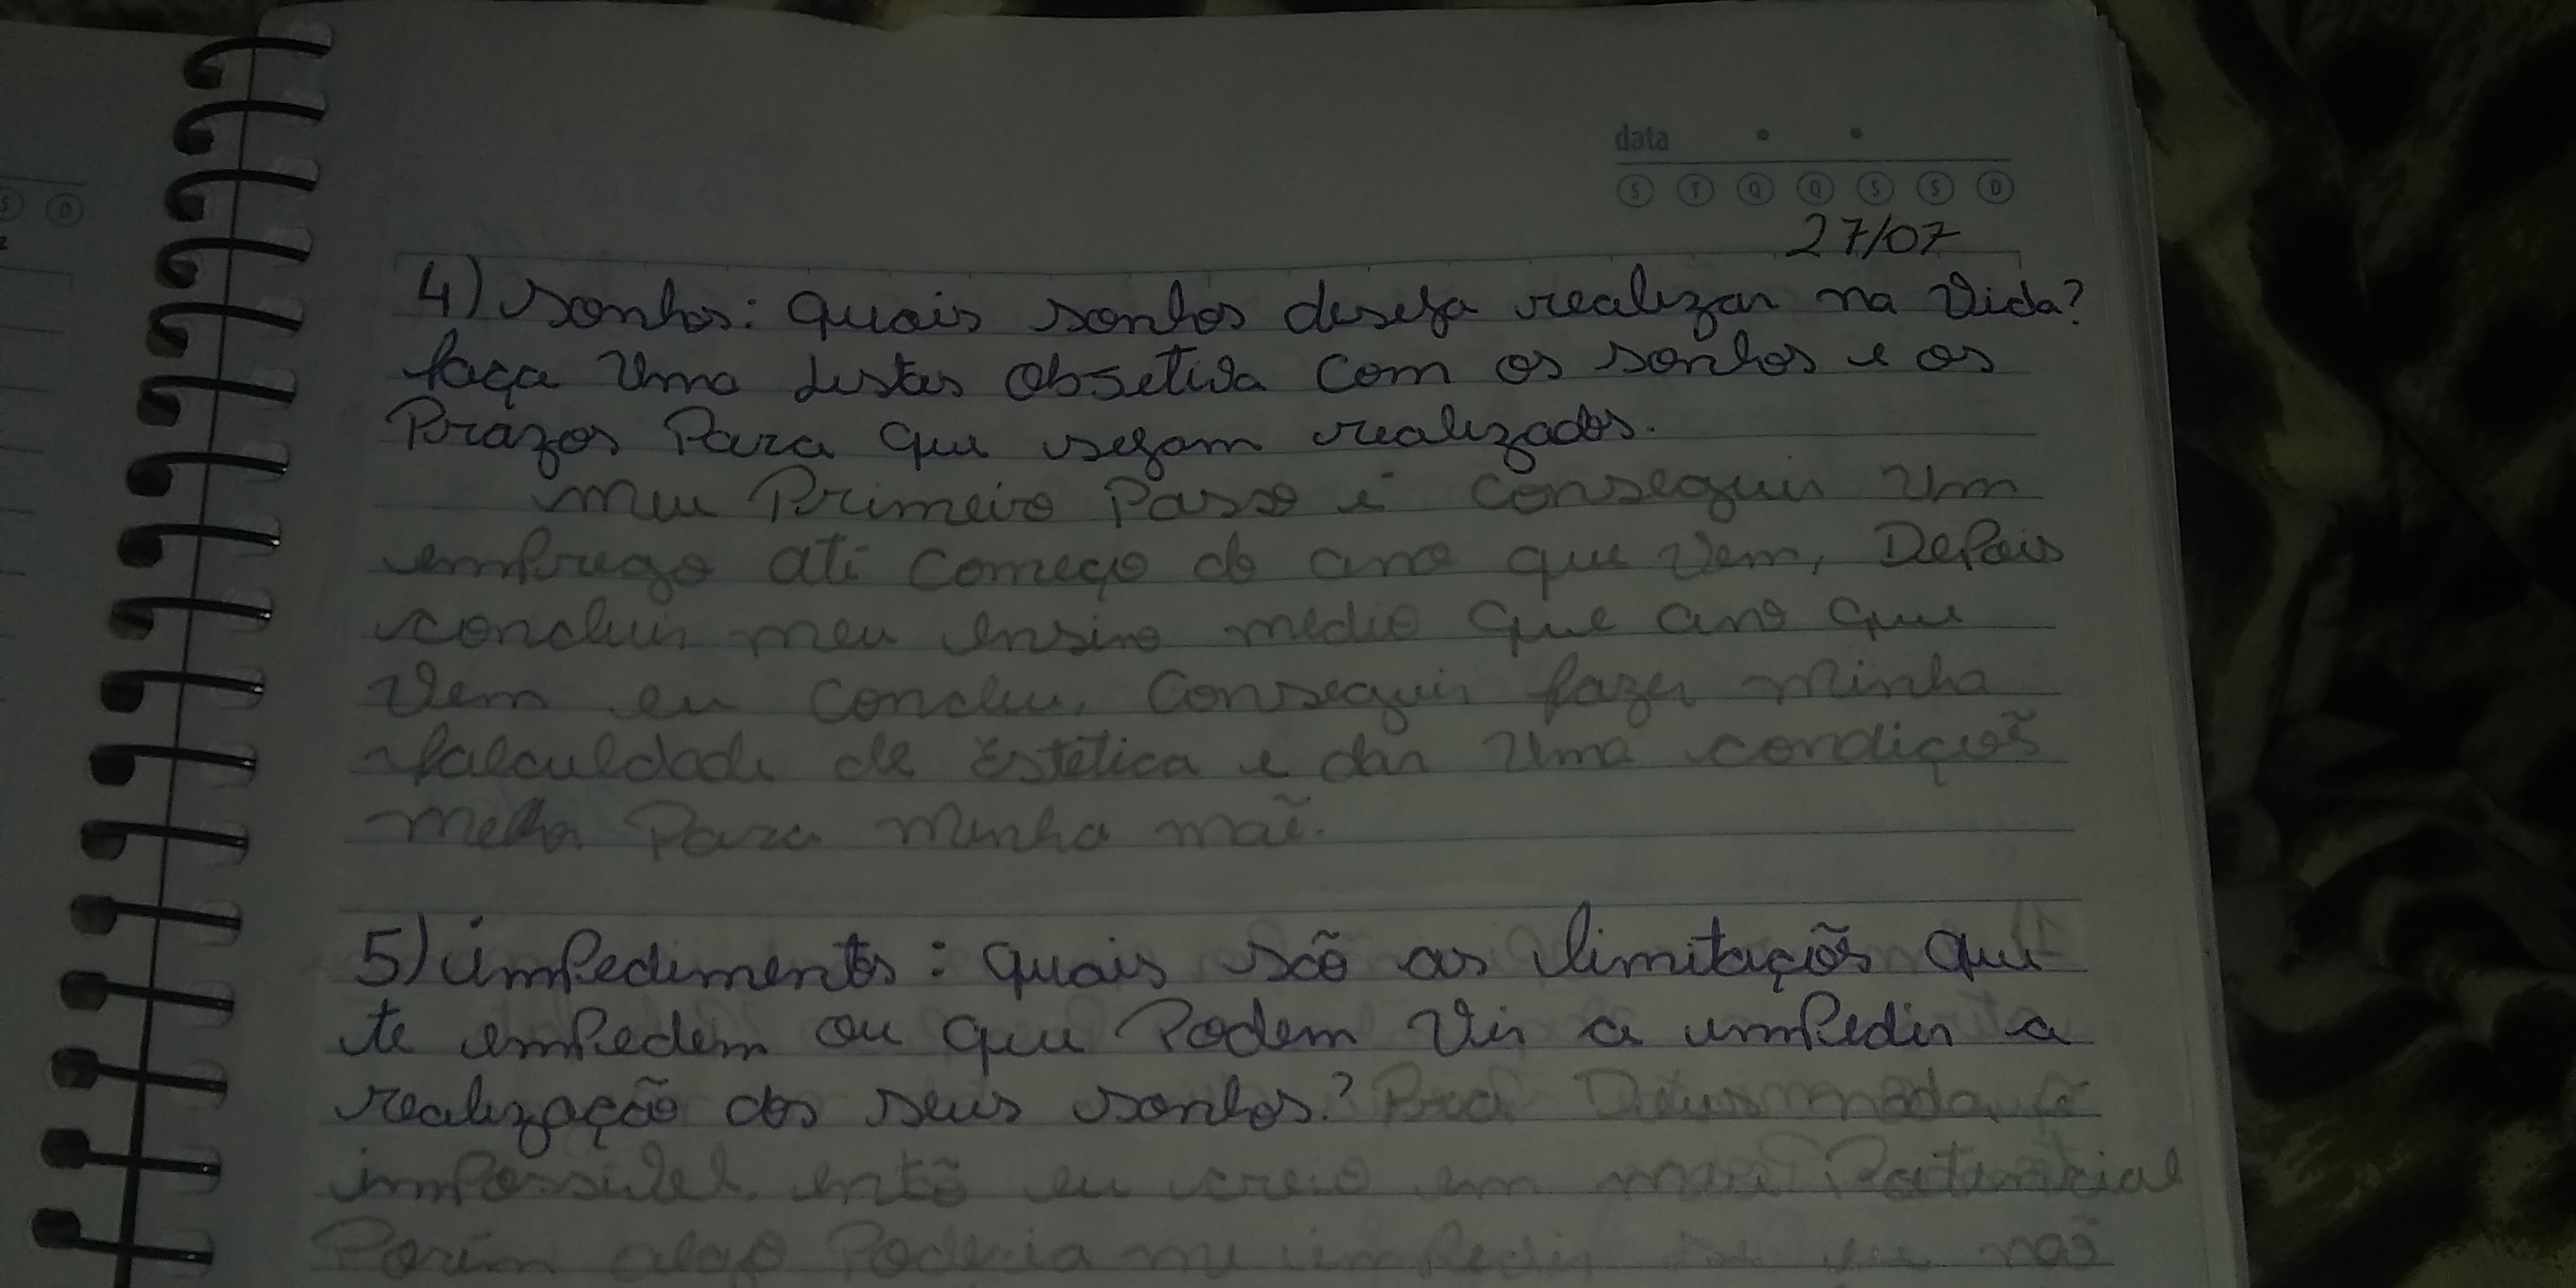 data
S T Q Q S S D
S D
27/07
4) sonhos: quais sonhos deseja realizar na vida?
faça uma listas objetiva com os sonhos e os
Prazos Para que sejam realizados.
meu Primeiro Passo é conseguir um
emprego até começo do ano que vem, Depois
concluir meu ensino médio que ano que
vem eu conclu, conseguir fazer minha
falculdade de Estética e dar uma condiçoẽ
melhor Para minha maẽ.
5) impedimentos: quais são as limitaçoẽs que
te empedem ou que Podem vir a impedir a
realização dos seus sonhos? Pra Deus nada é
impossivel, entõ eu creio em meu Potencial
Porém algo Poderia me impedir se eu naõ